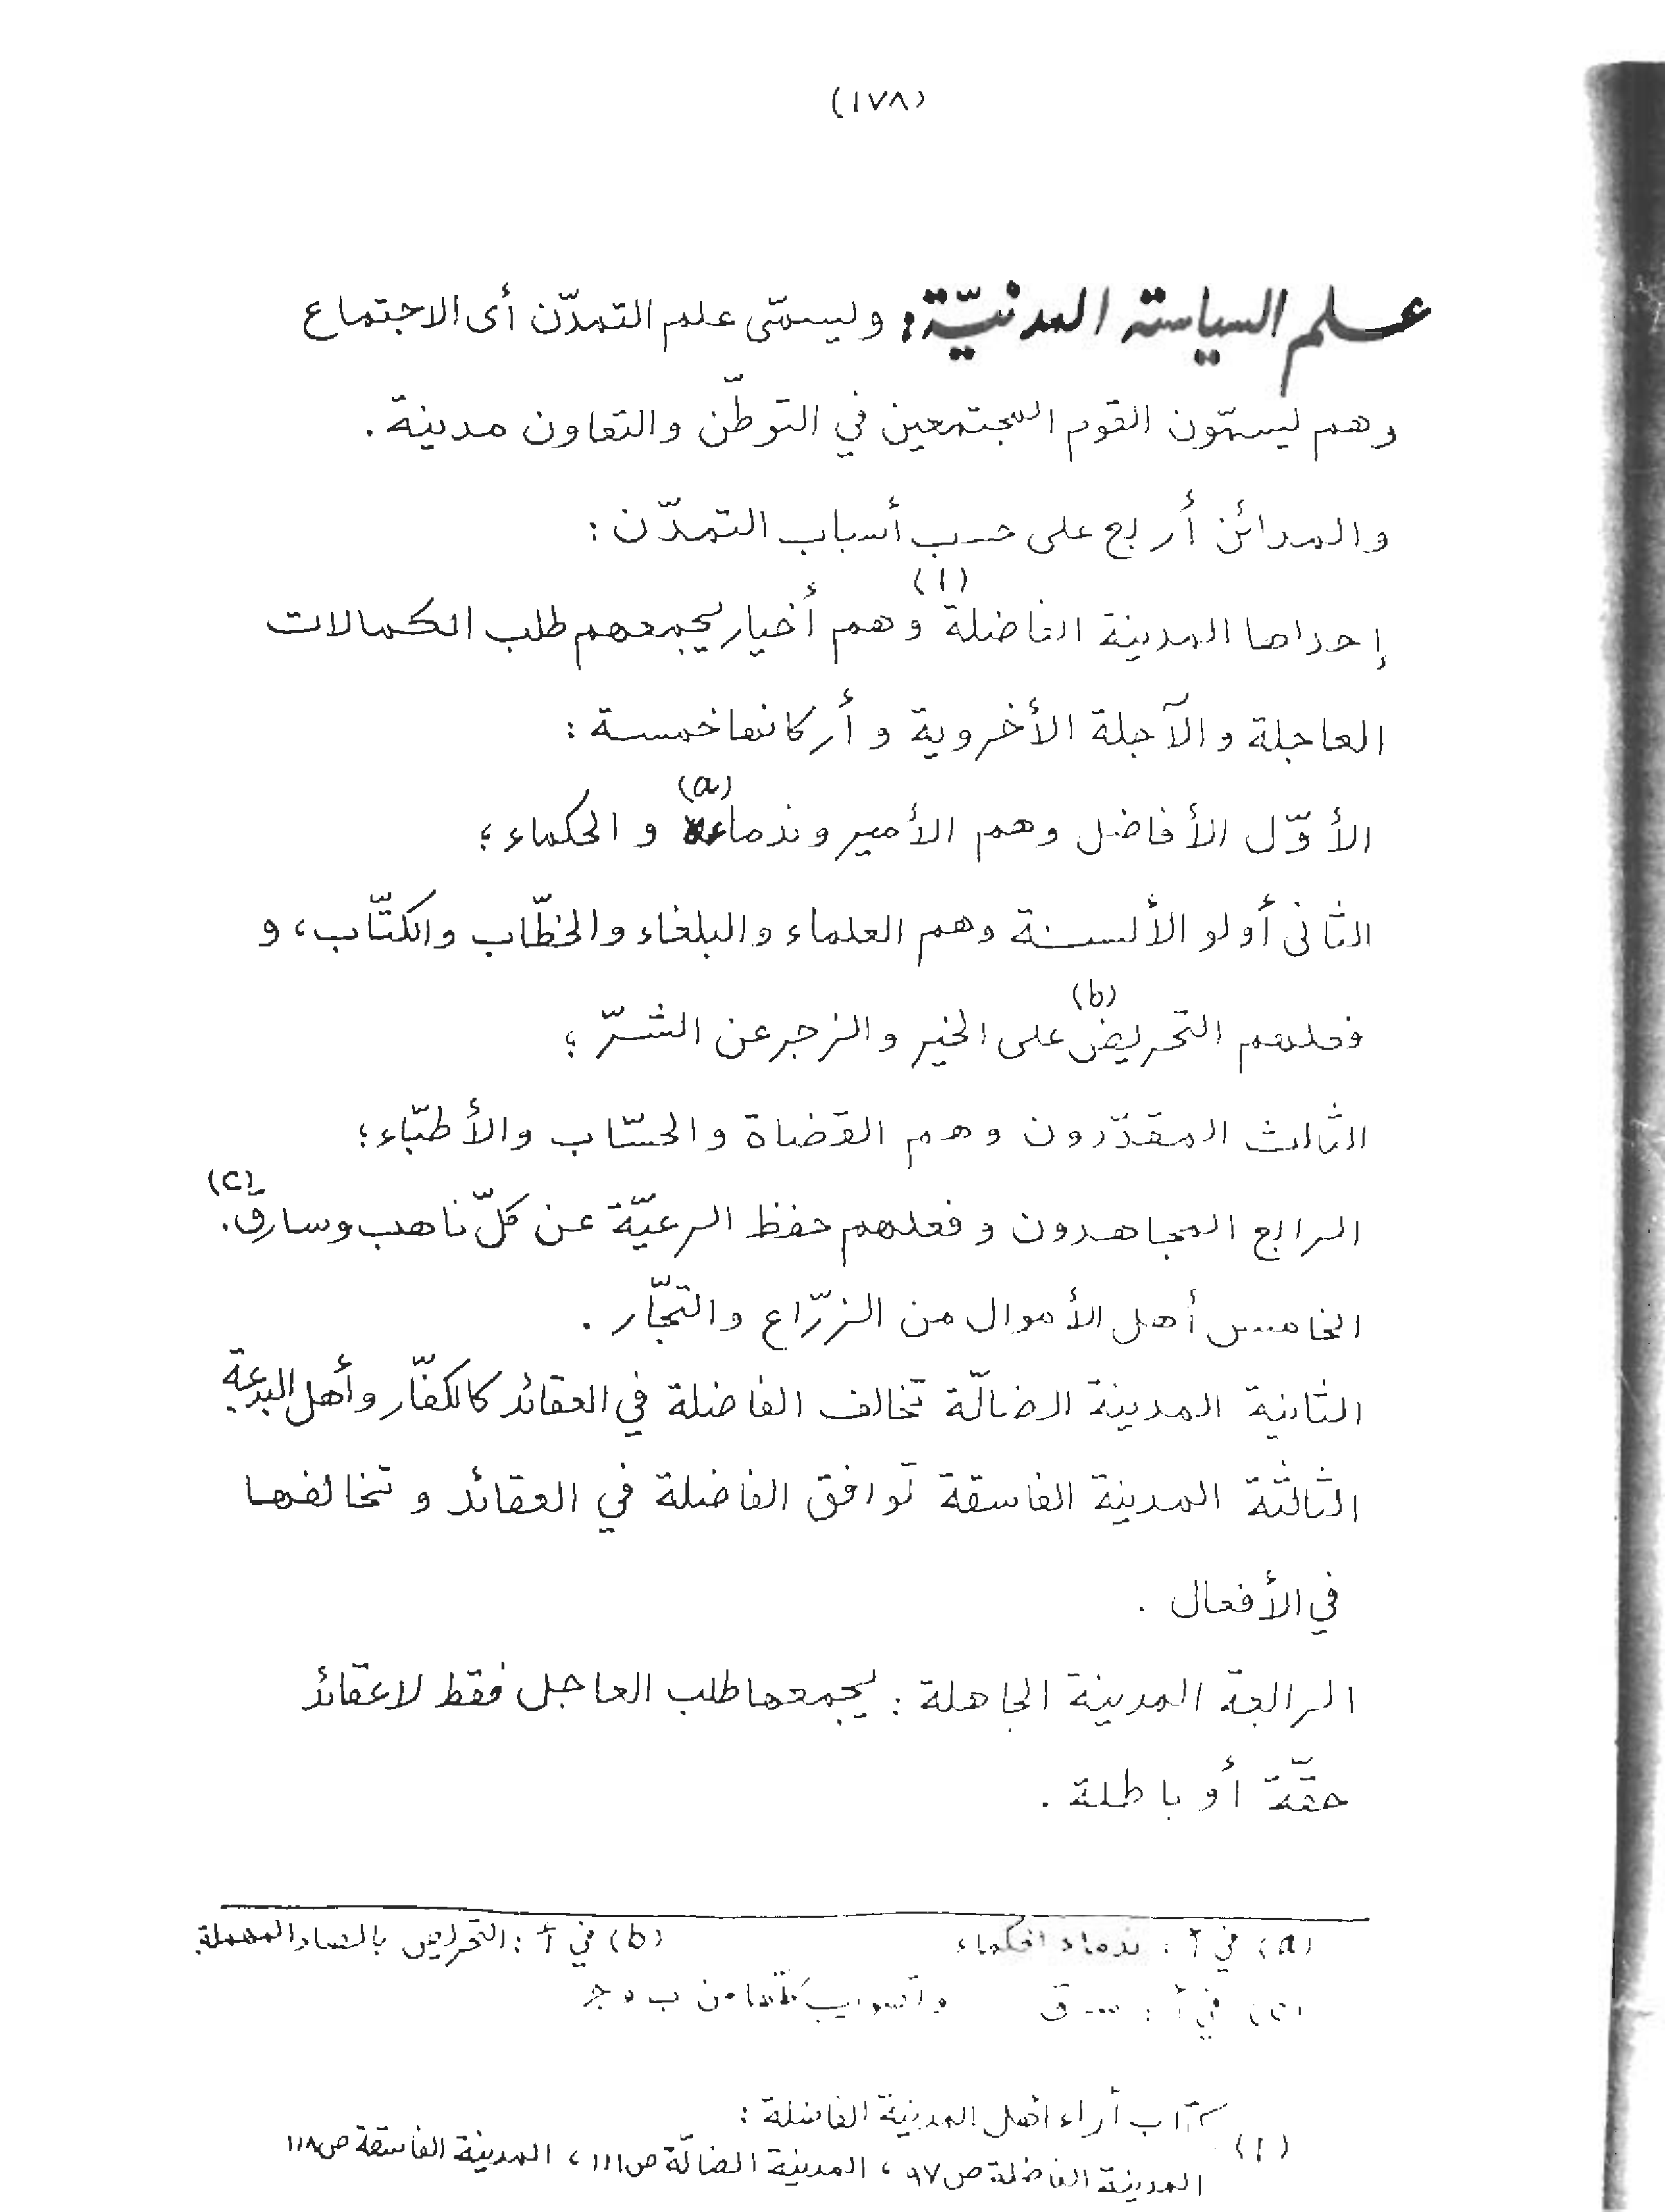 (١٧٨)
علم السياسة المدنيّة: ويسمّى علم التمدّن أى الاجتماع
وهم يسمّون القوم المجتمعين في التوطّن والتعاون مدينة .
والمدائن أربع على حسب أسباب التمدّن :
إحداها المدينة الفاضلة (١) وهم أخيار يجمعهم طلب الكمالات
العاجلة والآجلة الأخروية و أركانها خمسة :
الأوّل الأفاضل وهم الأمير وندماءه (a) و الحكماء ؛
الثانى أولو الألسنة وهم العلماء والبلغاء والخطّاب والكتّاب ، و
فعلهم التحريض (b) على الخير والزجر عن الشرّ ؛
الثالث المقدّرون وهم القضاة والحسّاب والأطبّاء ؛
الرابع المجاهدون وفعلهم حفظ الرعيّة عن كلّ ناهب وسارق (c) .
الخامس أهل الأموال من الزرّاع والتجّار .
الثانية المدينة الضالّة تخالف الفاضلة في العقائد كالكفّار وأهل البدعة
الثالثة المدينة الفاسقة توافق الفاضلة في العقائد و تخالفها
في الأفعال .
الرابعة المدينة الجاهلة : يجمعها طلب العاجل فقط لا عقائد
حقّة أو باطلة .
(a) في أ : ندماء الحكماء (b) في أ : التحريص بالصاد المهملة
(c) في أ : سرق والتصويب من ب و جـ
(١) كتاب أراء اهل المدينة الفاضلة :
المدينة الفاضلة ص ٩٧ ، المدينة الضالّة ص ١١١ ، المدينة الفاسقة ص ١١٨